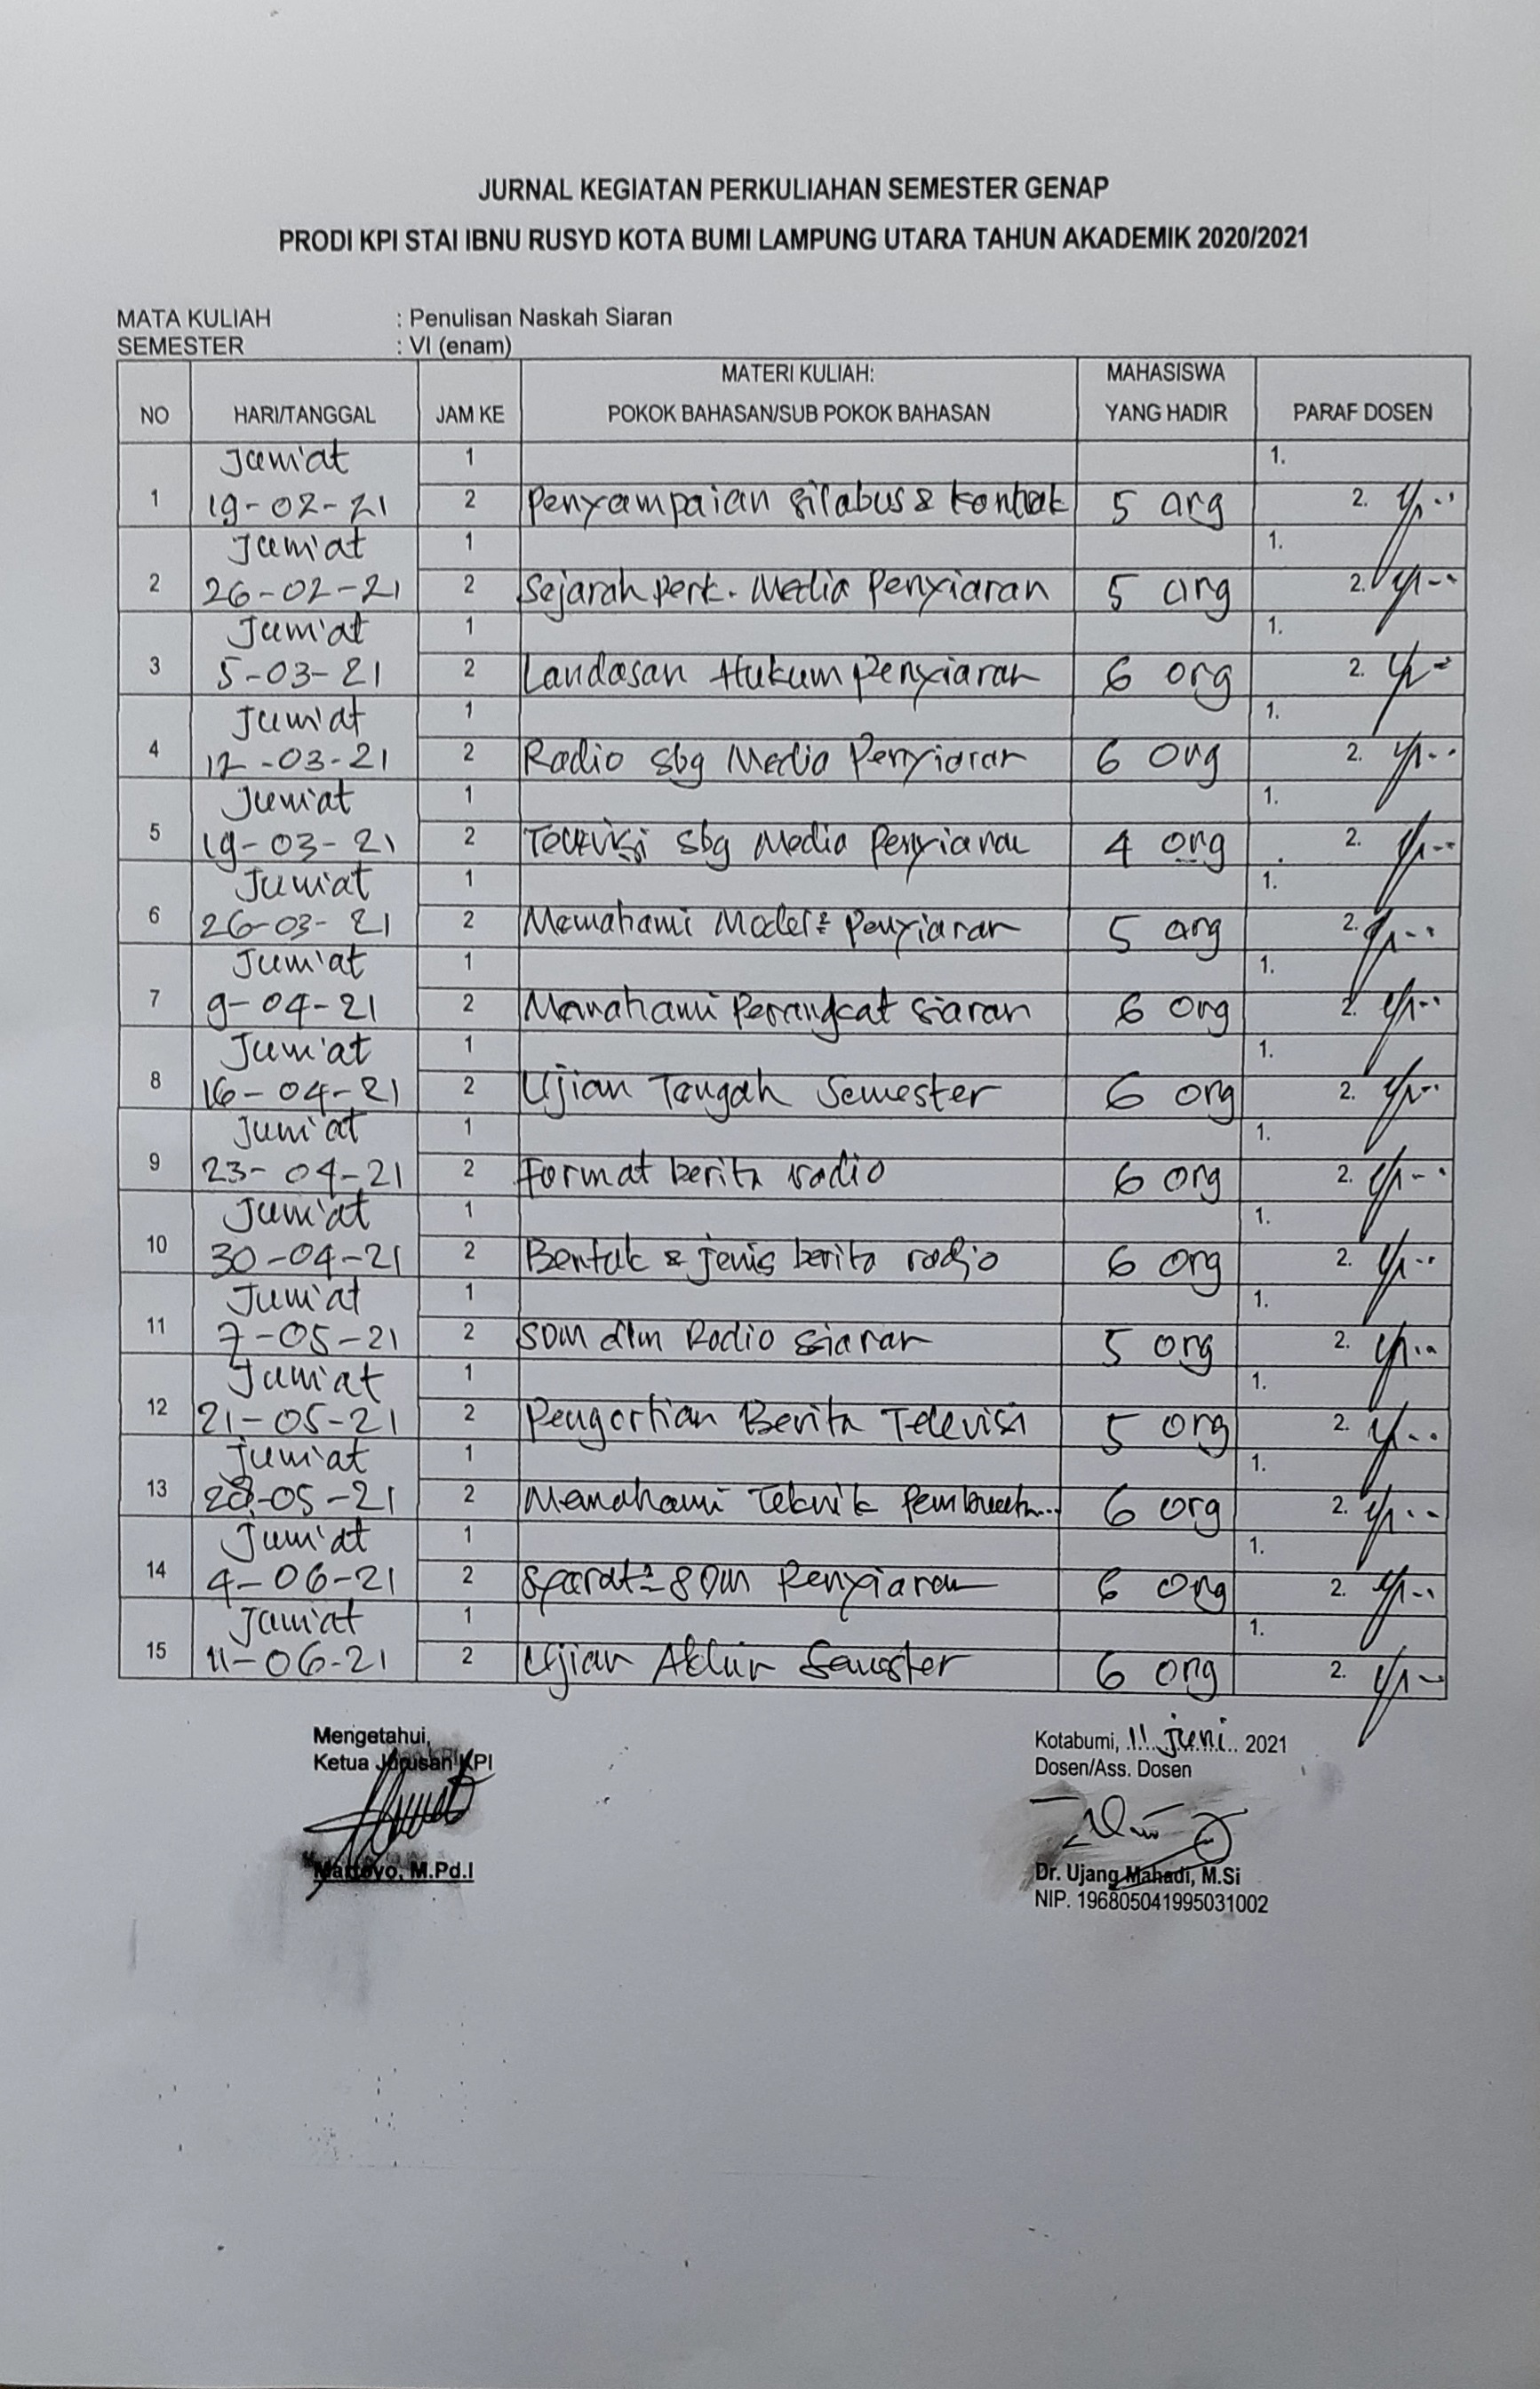 JURNAL KEGIATAN PERKULIAHAN SEMESTER GENAP
PRODI KPI STAI IBNU RUSYD KOTA BUMI LAMPUNG UTARA TAHUN AKADEMIK 2020/2021
MATA KULIAH : Penulisan Naskah Siaran
SEMESTER : VI (enam)
NO HARI/TANGGAL JAM KE MATERI KULIAH: POKOK BAHASAN/SUB POKOK BAHASAN MAHASISWA YANG HADIR PARAF DOSEN
Jum'at 1 1.
1 19-02-21 2 Penyampaian silabus & kontrak 5 org 2.
Jum'at 1 1.
2 26-02-21 2 Sejarah perk. Media Penyiaran 5 org 2.
Jum'at 1 1.
3 5-03-21 2 Landasan Hukum Penyiaran 6 org 2.
Jum'at 1 1.
4 12-03-21 2 Radio sbg Media Penyiaran 6 org 2.
Jum'at 1 1.
5 19-03-21 2 Televisi sbg Media Penyiaran 4 org 2.
Jum'at 1 1.
6 26-03-21 2 Memahami Model² Penyiaran 5 org 2.
Jum'at 1 1.
7 9-04-21 2 Memahami Perangkat siaran 6 org 2.
Jum'at 1 1.
8 16-04-21 2 Ujian Tengah Semester 6 org 2.
Jum'at 1 1.
9 23-04-21 2 Format berita radio 6 org 2.
Jum'at 1 1.
10 30-04-21 2 Bentuk & jenis berita radio 6 org 2.
Jum'at 1 1.
11 7-05-21 2 SDM dlm Radio siaran 5 org 2.
Jum'at 1 1.
12 21-05-21 2 Pengertian Berita Televisi 5 org 2.
Jum'at 1 1.
13 28-05-21 2 Memahami Teknik Pembuatan... 6 org 2.
Jum'at 1 1.
14 4-06-21 2 Syarat² SDM Penyiaran 6 org 2.
Jum'at 1 1.
15 11-06-21 2 Ujian Akhir Semester 6 org 2.
Mengetahui,
Ketua Jurusan KPI
M.Pd.I
Kotabumi, 11 Juni 2021
Dosen/Ass. Dosen
Dr. Ujang Mahadi, M.Si
NIP. 196805041995031002